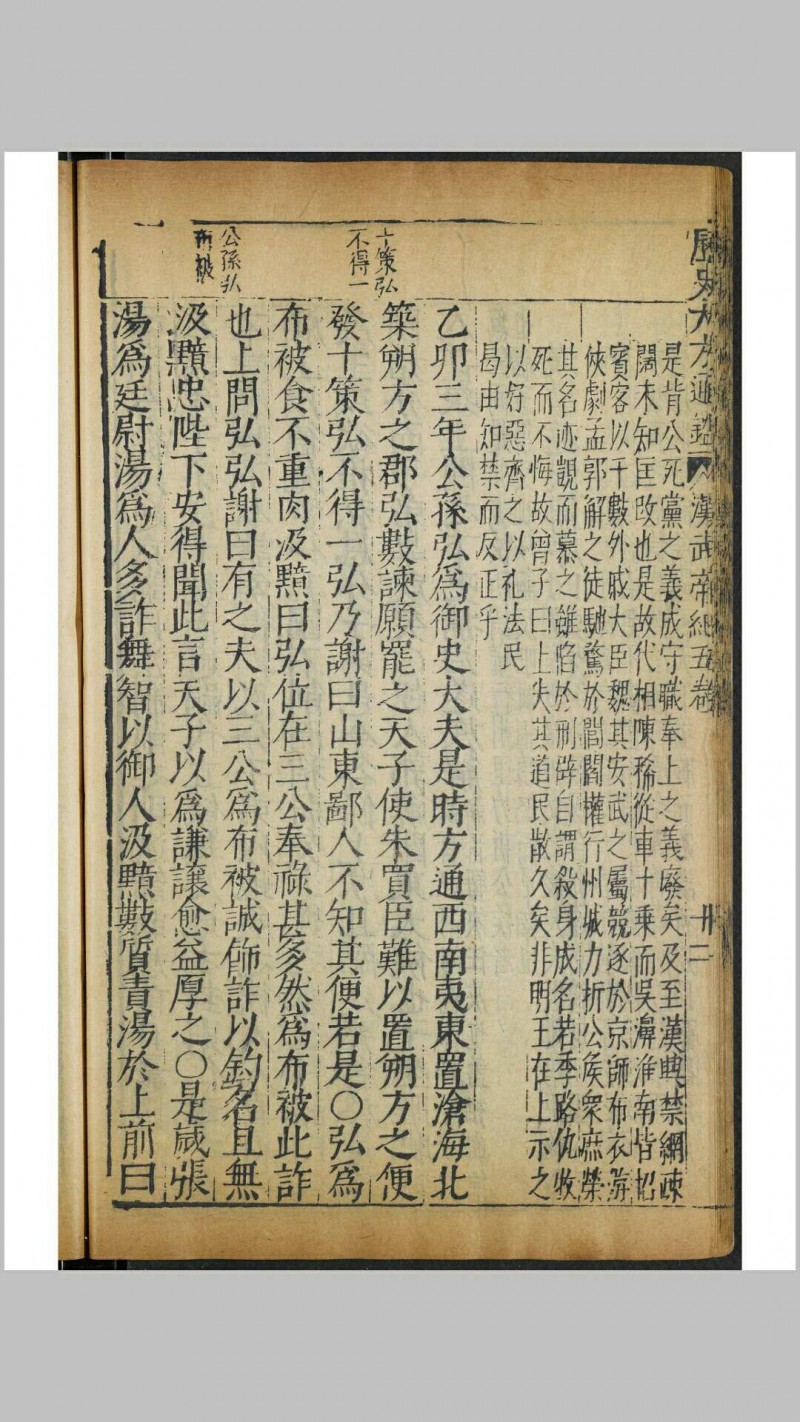 歷史大方通鑑 漢武帝紀五卷 卅二
是背公死黨之義成守職奉上之義廢矣及至漢興禁網疎
闊未知匡改也是故代相陳豨從車十乘而吳濞淮南皆招
賓客以千數外戚大臣魏其安武之屬競逐於京師布衣游
俠劇孟郭解之徒馳騖於閭閻權行州域力折公侯衆庶榮
其名迹覬而慕之雖陷於刑辟自謂殺身成名若季路仇牧
死而不悔故曾子曰上失其道民散久矣非明王在上示之
以好惡齊之以礼法民
曷由知禁而反正乎
乙卯三年公孫弘爲御史大夫是時方通西南夷東置滄海北
築朔方之郡弘數諫願罷之天子使朱買臣難以置朔方之便
十策弘
不得一
發十策弘不得一弘乃謝曰山東鄙人不知其便若是〇弘爲
布被食不重肉汲黯曰弘位在三公奉祿甚多然爲布被此詐
也上問弘弘謝曰有之夫以三公爲布被誠飾詐以釣名且無
公孫弘
布被
汲黯忠陛下安得聞此言天子以爲謙讓愈益厚之〇是歲張
湯爲廷尉湯爲人多詐舞智以御人汲黯數質責湯於上前曰